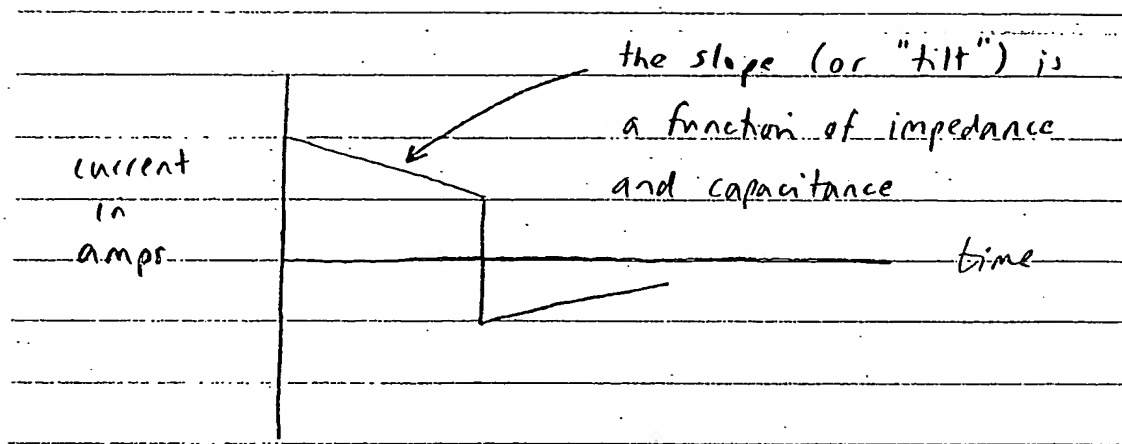 the slope (or "tilt") is
a function of impedance
and capacitance
current
in
amps
time